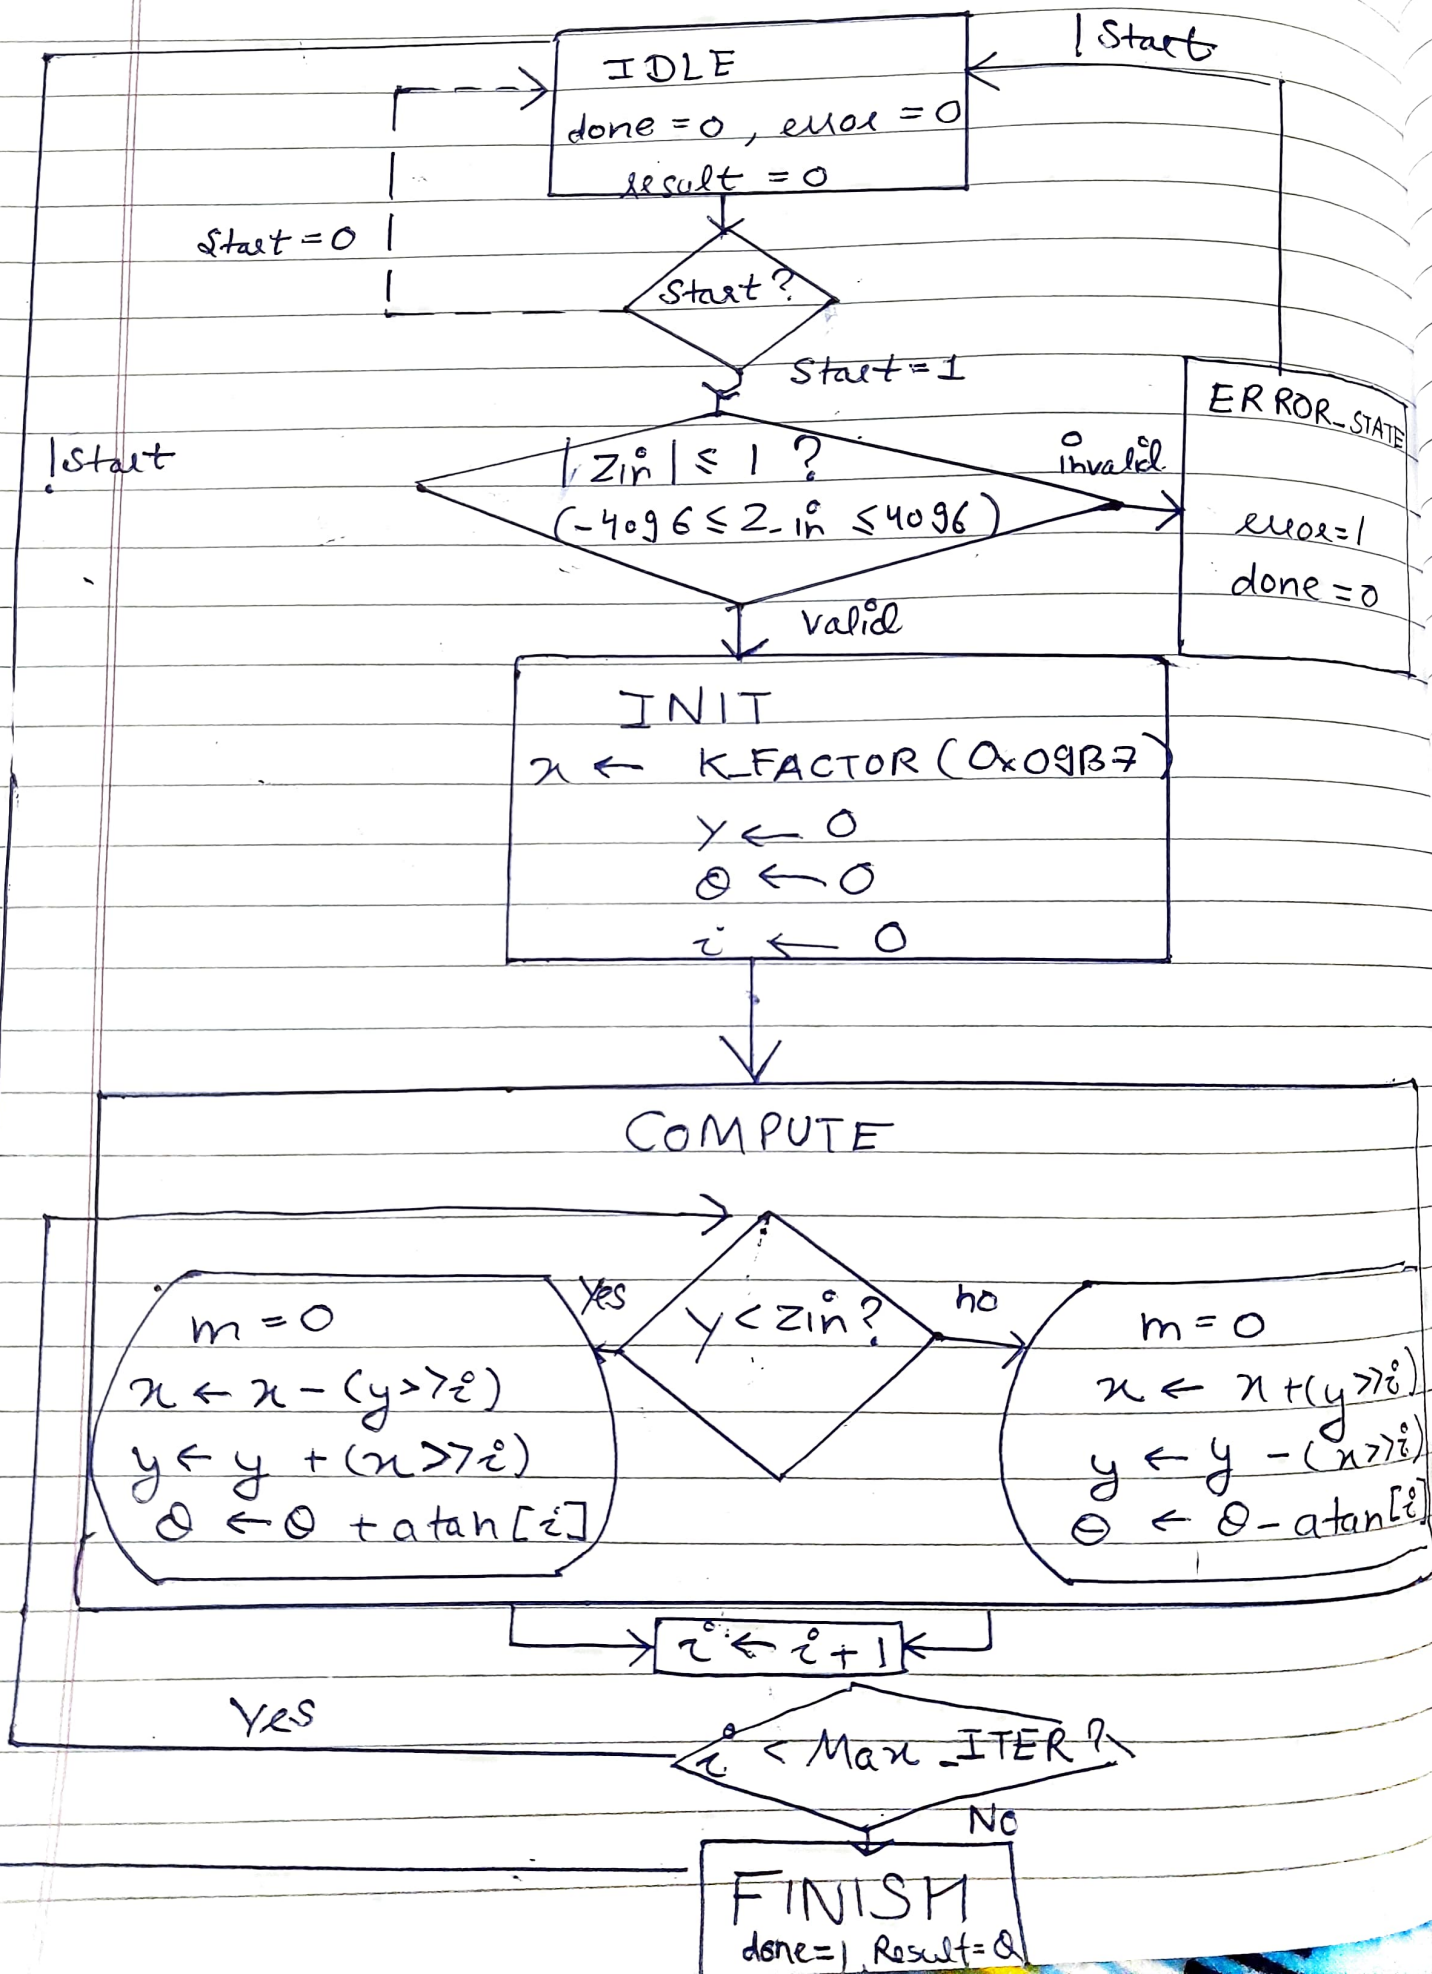 IDLE
!Start
done = 0, error = 0
result = 0
Start = 0
Start?
Start = 1
ERROR_STATE
!Start
|Zin| ≤ 1 ?
invalid
(-4096 ≤ Z_in ≤ 4096)
error=1
done = 0
valid
INIT
x ← K_FACTOR (0x09B7)
y ← 0
θ ← 0
i ← 0
COMPUTE
Yes
y < Zin?
no
m = 0
x ← x - (y>>i)
y ← y + (x>>i)
θ ← θ + atan[i]
m = 0
x ← x + (y>>i)
y ← y - (x>>i)
θ ← θ - atan[i]
i ← i + 1
Yes
i < Max_ITER?
No
FINISH
done=1, Result=θ